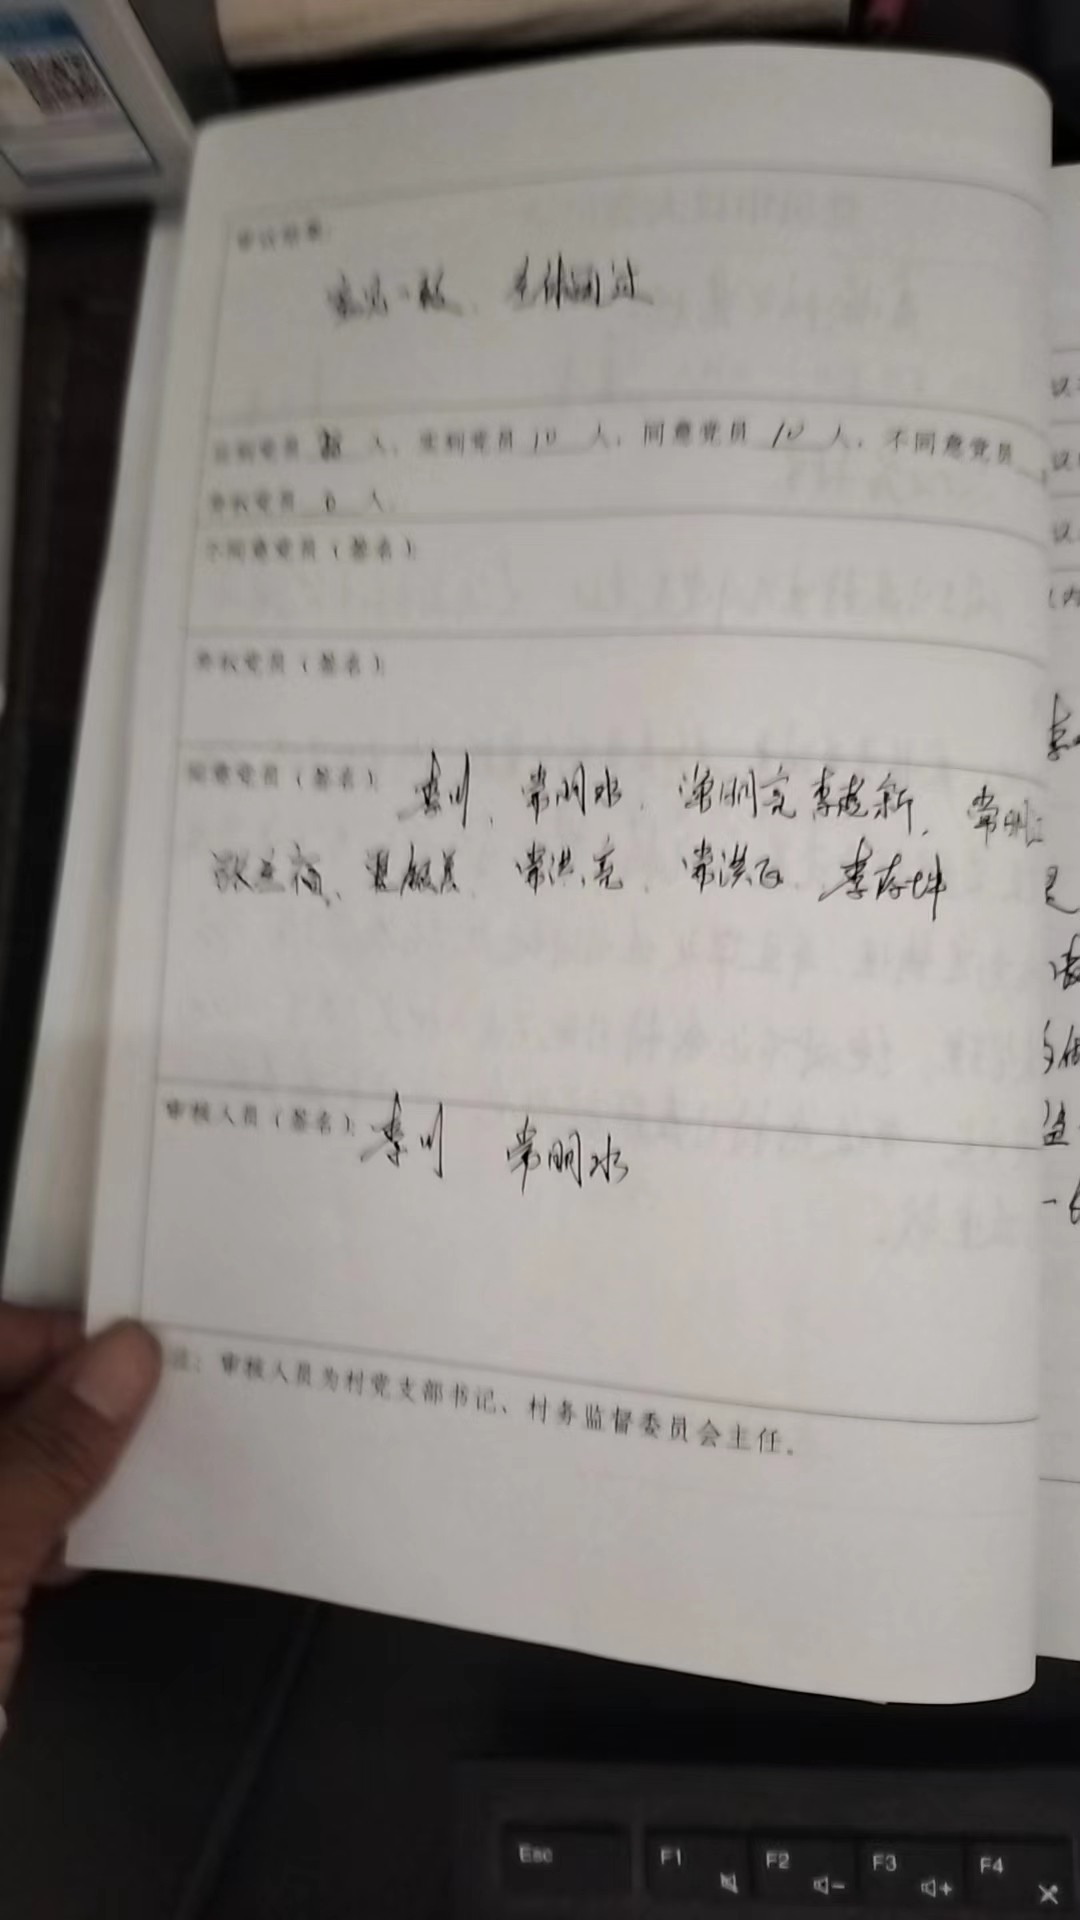 审议结果：
意见一致、全体通过
应到党员 人，实到党员 10 人，同意党员 10 人，不同意党员
弃权党员 0 人。
不同意党员（签名）：
弃权党员（签名）：
同意党员（签名）： 李川、常明水、常明亮 李建新、常明
常洪亮、常洪飞、李存坤
审核人员（签名）：李川 常明水
注：审核人员为村党支部书记、村务监督委员会主任。
Esc F1 F2 F3 F4